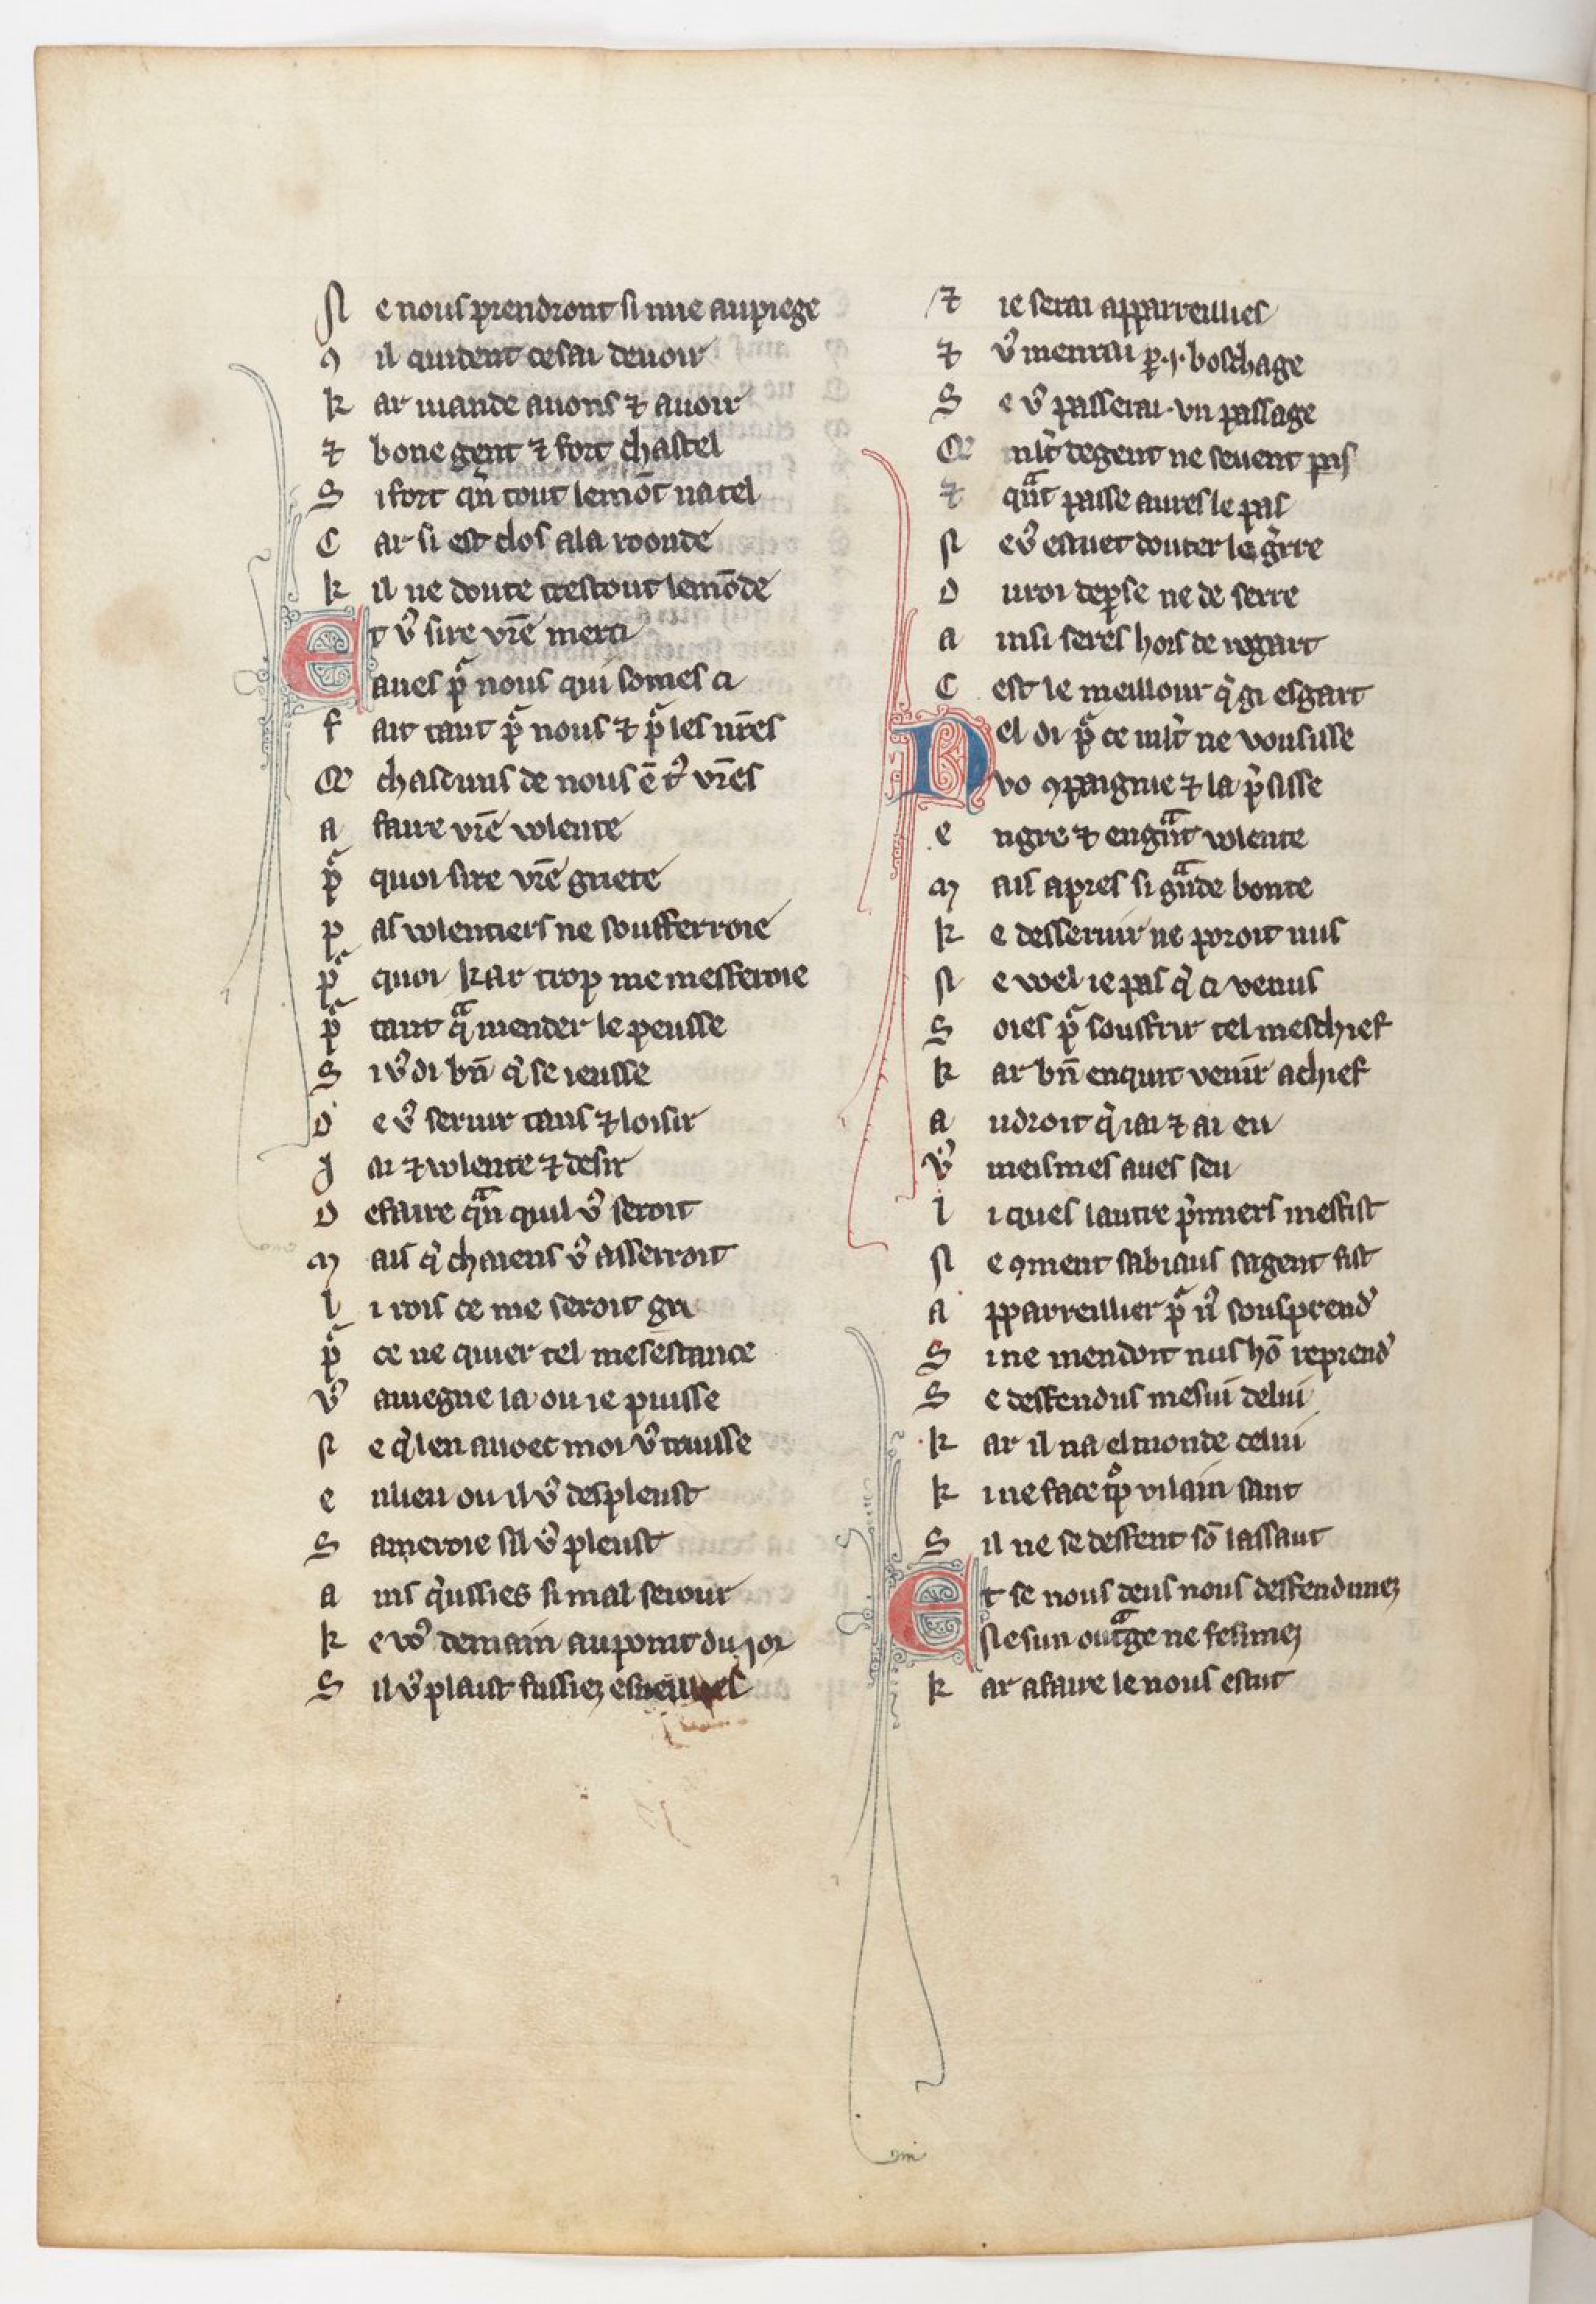 N e nous prendront si mie au piege
9 il quident ce sai de uoir
K ar uiande auons ⁊ auoir
⁊ bone gent ⁊ fort chastel
S i fort qͣn tout le mōt na tel
C ar si est clos a la roonde
K il ne doute trestout le mōde
E t vͦ sire vr̄e merci
aues pͬ nous qui somes ci
F ait tant pͬ nous ⁊ pͬ les nr̄es
Q̄ chascuns de nous ē tͦ vr̄es
A faire vr̄e volente
Pͬ quoi sire vr̄e griete
P as volentiers ne soufferroie
Pͬ quoi kar trop me mesferoie
Pͬ tant qͣ mender le peusse
S i vͦ di bn̄ qͥ se ieusse
D e vͦ seruir tans ⁊ loisir
J ai ⁊ volente ⁊ desir
D e faire qͣn quil vͦ seroit
M ais qͥ chaiens vͦ asserroit
L i rois ce me seroit gri
Pͬ ce ne quier tel mesestance
Vͦ auiegne la ou ie puisse
N e qͥ len auoec moi vͦ truisse
E n lieu ou il vͦ despleust
S ameroie sil vͦ pleust
A ins qͥ ussies si mal seiour
K e vͦ demain au point du ior
S il vͦ plaist fussiez esueillies
⁊ ie serai apparreillies
⁊ vͦ menrai ꝑ .i. boschage
S e vͦ passerai .un passage
Q̄ ml̄t de gent ne seuent pas
⁊ qͣnt passe aures le pas
N e vͦ estuet douter le gͥrre
D u roi de ꝑse ne de serre
A insi seres hors de regart
C est le meillour qͥ gi esgart
N el di pͬ ce ml̄t ne vousisse
vo ꝯpaignie ⁊ la pͥsisse
E ngre ⁊ en gͣnt volente
M ais apres si gͣnde bonte
K e desseruir ne poroit nus
N e woel ie pas qͥ ci venus
S oies pͬ souffrir tel meschief
K ar bn̄ en quit venir a chief
A u droit qͥ iai ⁊ ai eu
Vͦ meismes aues seu
L i quels lautre pͥmiers mesfist
N e ꝯment fabiaus sa gent fist
A pparreillier pͬ nͦ sousprendͬ
S i ne men doit nus hō reprendͬ
S e desfendus me sui de lui
K ar il na el monde celui
K i ne face tͦp vilain saut
S il ne se desfent sō lassaut
E t se nous deus nous desfendimez
Nesun outͣge ne fesimez
K ar a faire le nous estut